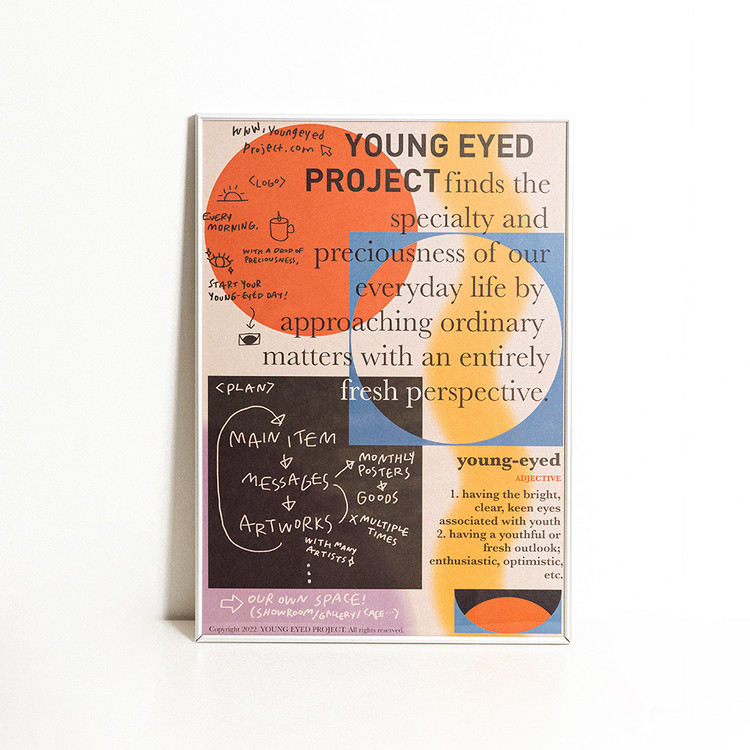 www.youngeyed
project.com
<LOGO>
EVERY
MORNING.
WITH A DROP OF
PRECIOUSNESS,
START YOUR
YOUNG-EYED DAY!
YOUNG EYED
PROJECT finds the
specialty and
preciousness of our
everyday life by
approaching ordinary
matters with an entirely
fresh perspective.
<PLAN>
MAIN ITEM
MESSAGES
ARTWORKS
WITH MANY
ARTISTS
MONTHLY
POSTERS
GOODS
X MULTIPLE
TIMES
OUR OWN SPACE!
(SHOWROOM/GALLERY/CAFE...)
young-eyed
ADJECTIVE
1. having the bright,
clear, keen eyes
associated with youth
2. having a youthful or
fresh outlook;
enthusiastic, optimistic,
etc.
Copyright 2022. YOUNG EYED PROJECT. All rights reserved.